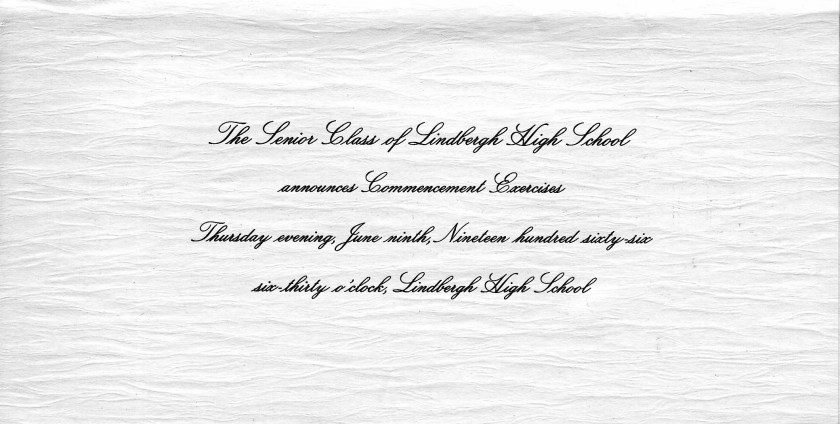 The Senior Class of Lindbergh High School
announces Commencement Exercises
Thursday evening, June ninth, Nineteen hundred sixty-six
six-thirty o'clock, Lindbergh High School